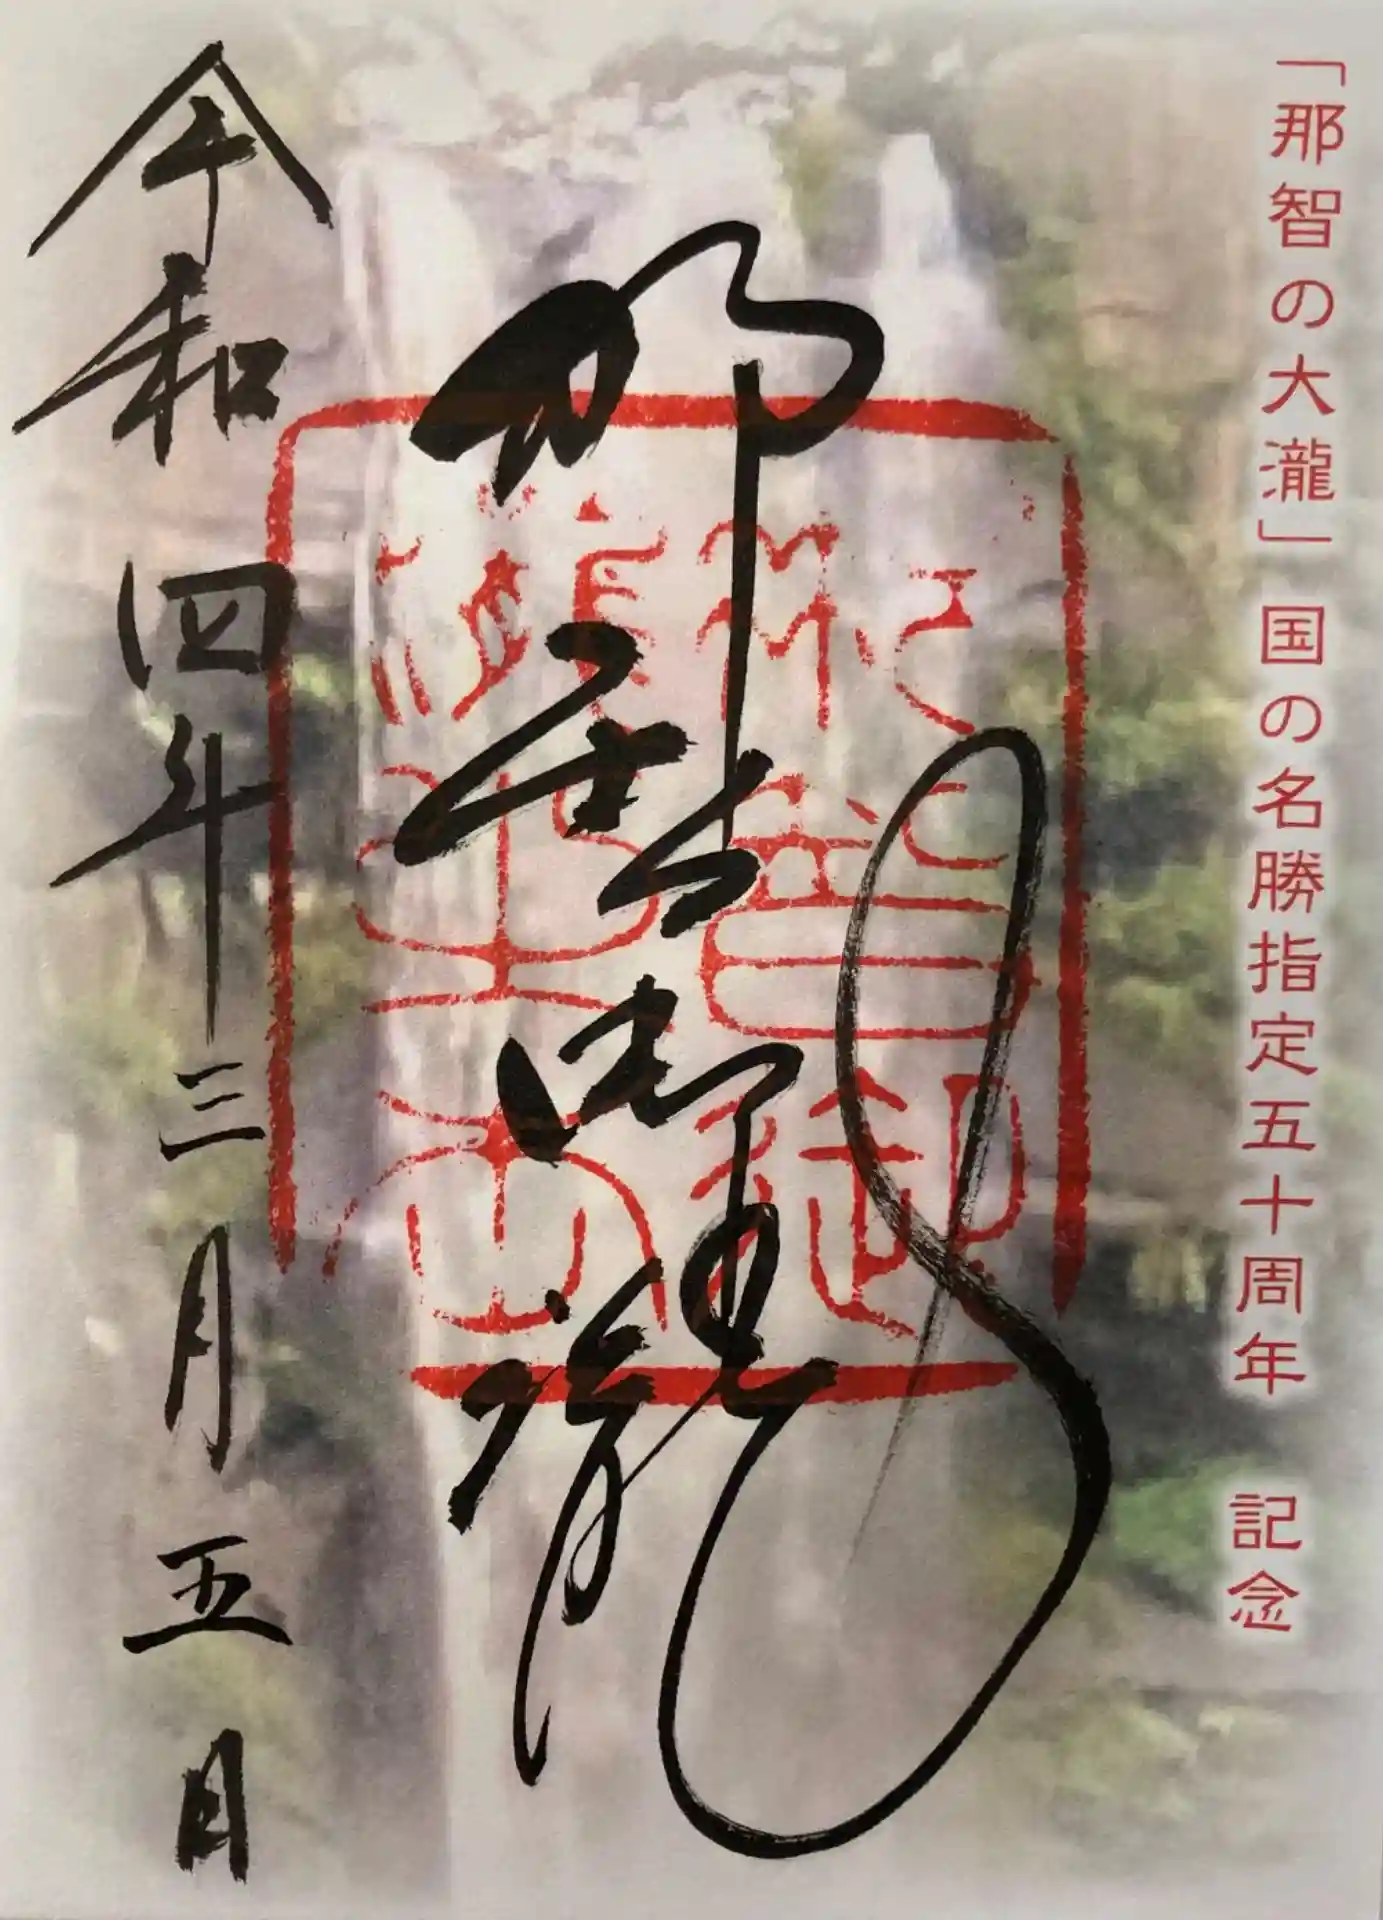 「那智の大瀧」国の名勝指定五十周年 記念
那智御瀧
令和四年三月五日